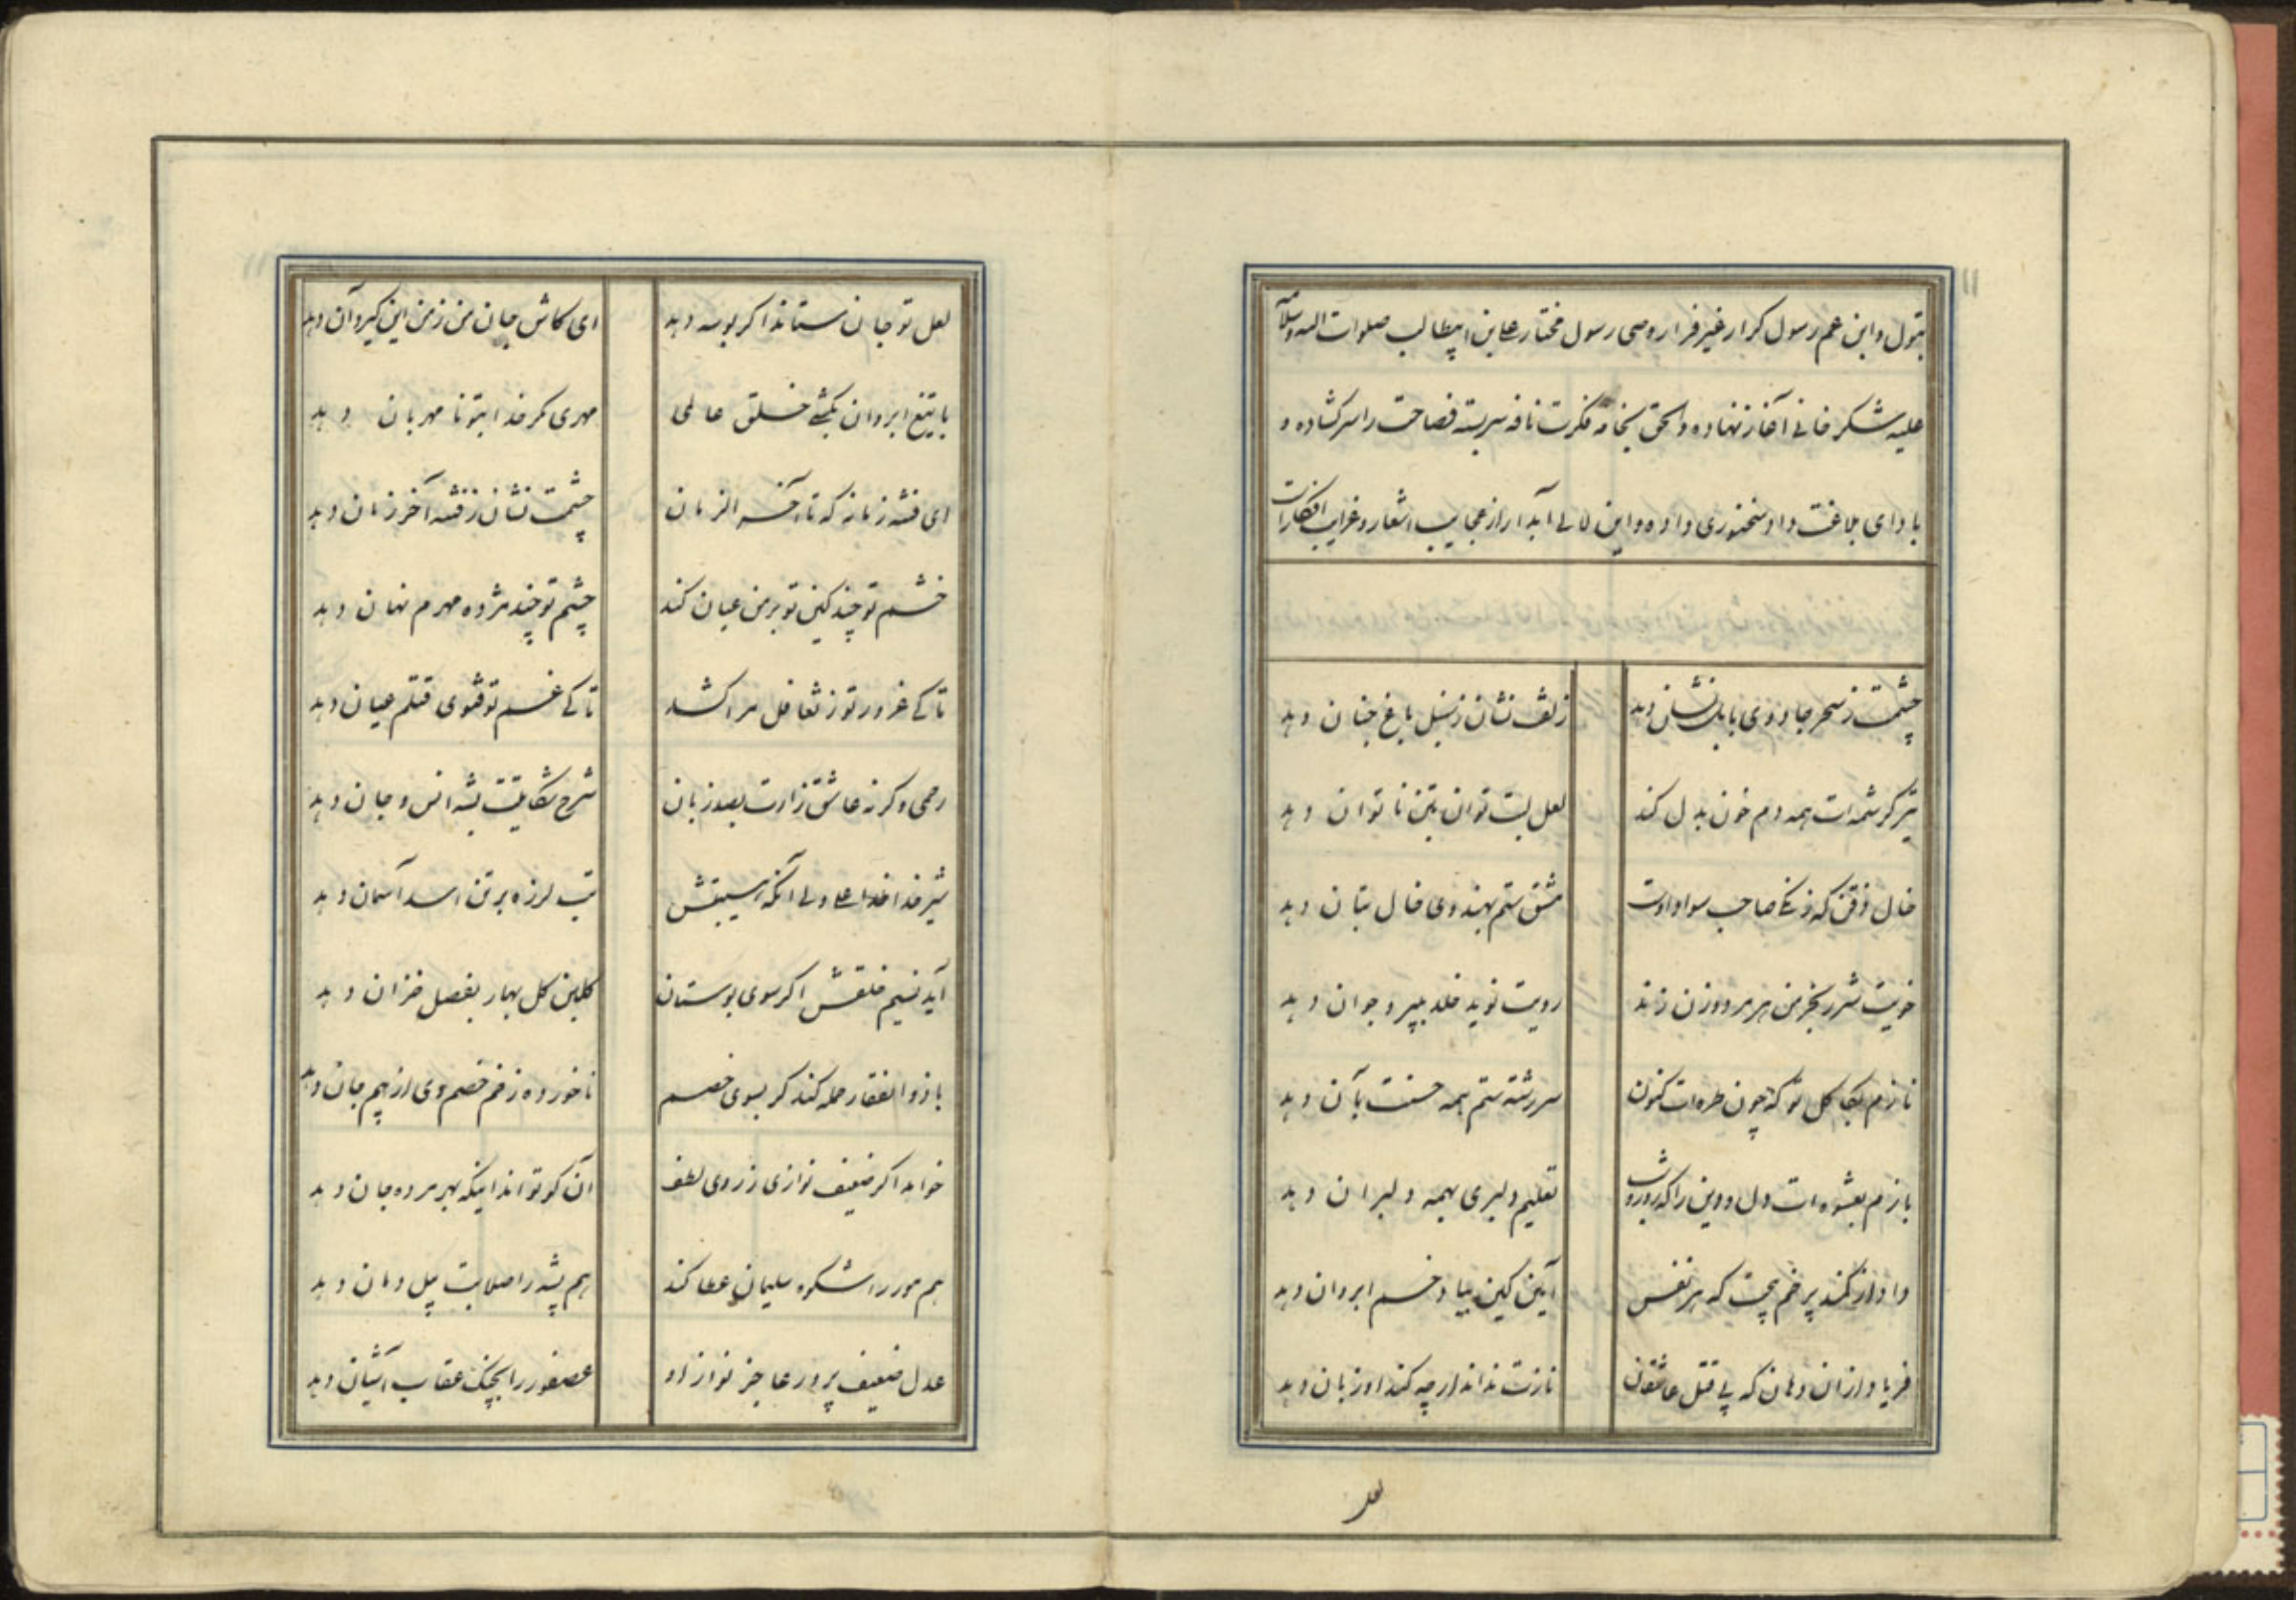 ۱۱
بتول و ابن عم رسول کرار غیر فرار وصی رسول مختار علی بن ابیطالب صلوات الله و سلامه
علیه شکر خانی آغاز نهاده و الحق بخامه فکرت نافه سربسته فصاحت را سر کشاده و
با دای بلاغت داد سخنوری داده و این لالی آبدار از عجایب اشعار و غرایب افکار
چشمت ز سحر جادوی بابل نشان دهد زلفت نشان ز سنبل باغ جنان دهد
تیر کرشمه ات همه دم خون بدل کند لعل لبت توان بتن ناتوان دهد
خال ذقن که زنگی صاحب سواد اوست مشق ستم بهندوی خال بتان دهد
خویت شرر بخرمن هر مرد و زن زند رویت نوید خلد بپیر و جوان دهد
نازم بکاکل تو که چون طره ات کنون سررشته ستم همه حسنت بآن دهد
بازم بعشوه ات دل و دین را که روز و شب تعلیم دلبری بهمه دلبران دهد
داد از کمند پر خم که هر نفس آیین کین بیاد خم ابروان دهد
فریاد از آن دهان که پی قتل عاشقان نازت نداند ار چه کند او زبان دهد
لعل
لعل تو جان ستاند اکر بوسه دهد ای کاش جان من ز من این کیرد آن دهد
با تیغ ابروان بکشی خلق عالمی مهری مکر خدا بتو نامهربان دهد
ای فتنه زمانه که تا آخر الزمان چشمت نشان ز فتنه آخر زمان دهد
خشم تو چند کین تو بر من عیان کند چشم تو چند مژده مهرم نهان دهد
تا کی غرور تو ز تغافل مرا کشد تا کی غم تو فتوی قتلم عیان دهد
رحمی و کرنه عاشق زارت بصد زبان شرح شکایتت بشه انس و جان دهد
شیر خدا علی ولی آنکه تب لرزه بر تن اسد آسمان دهد
آید نسیم خلقش اکر سوی بوستان کلبن کل بهار بفصل خزان دهد
با ذوالفقار حمله کند کر بسوی خصم ناخورده زخم خصم وی از بیم جان دهد
خواهد اکر ضعیف نوازی ز روی لطف آن کو تواند اینکه بهر مرده جان دهد
هم مور را شکوه سلیمان عطا کند هم پشه را صلابت پیل دمان دهد
عدل ضعیف پرور عاجز نواز او عصفور را بچنک عقاب آشیان دهد